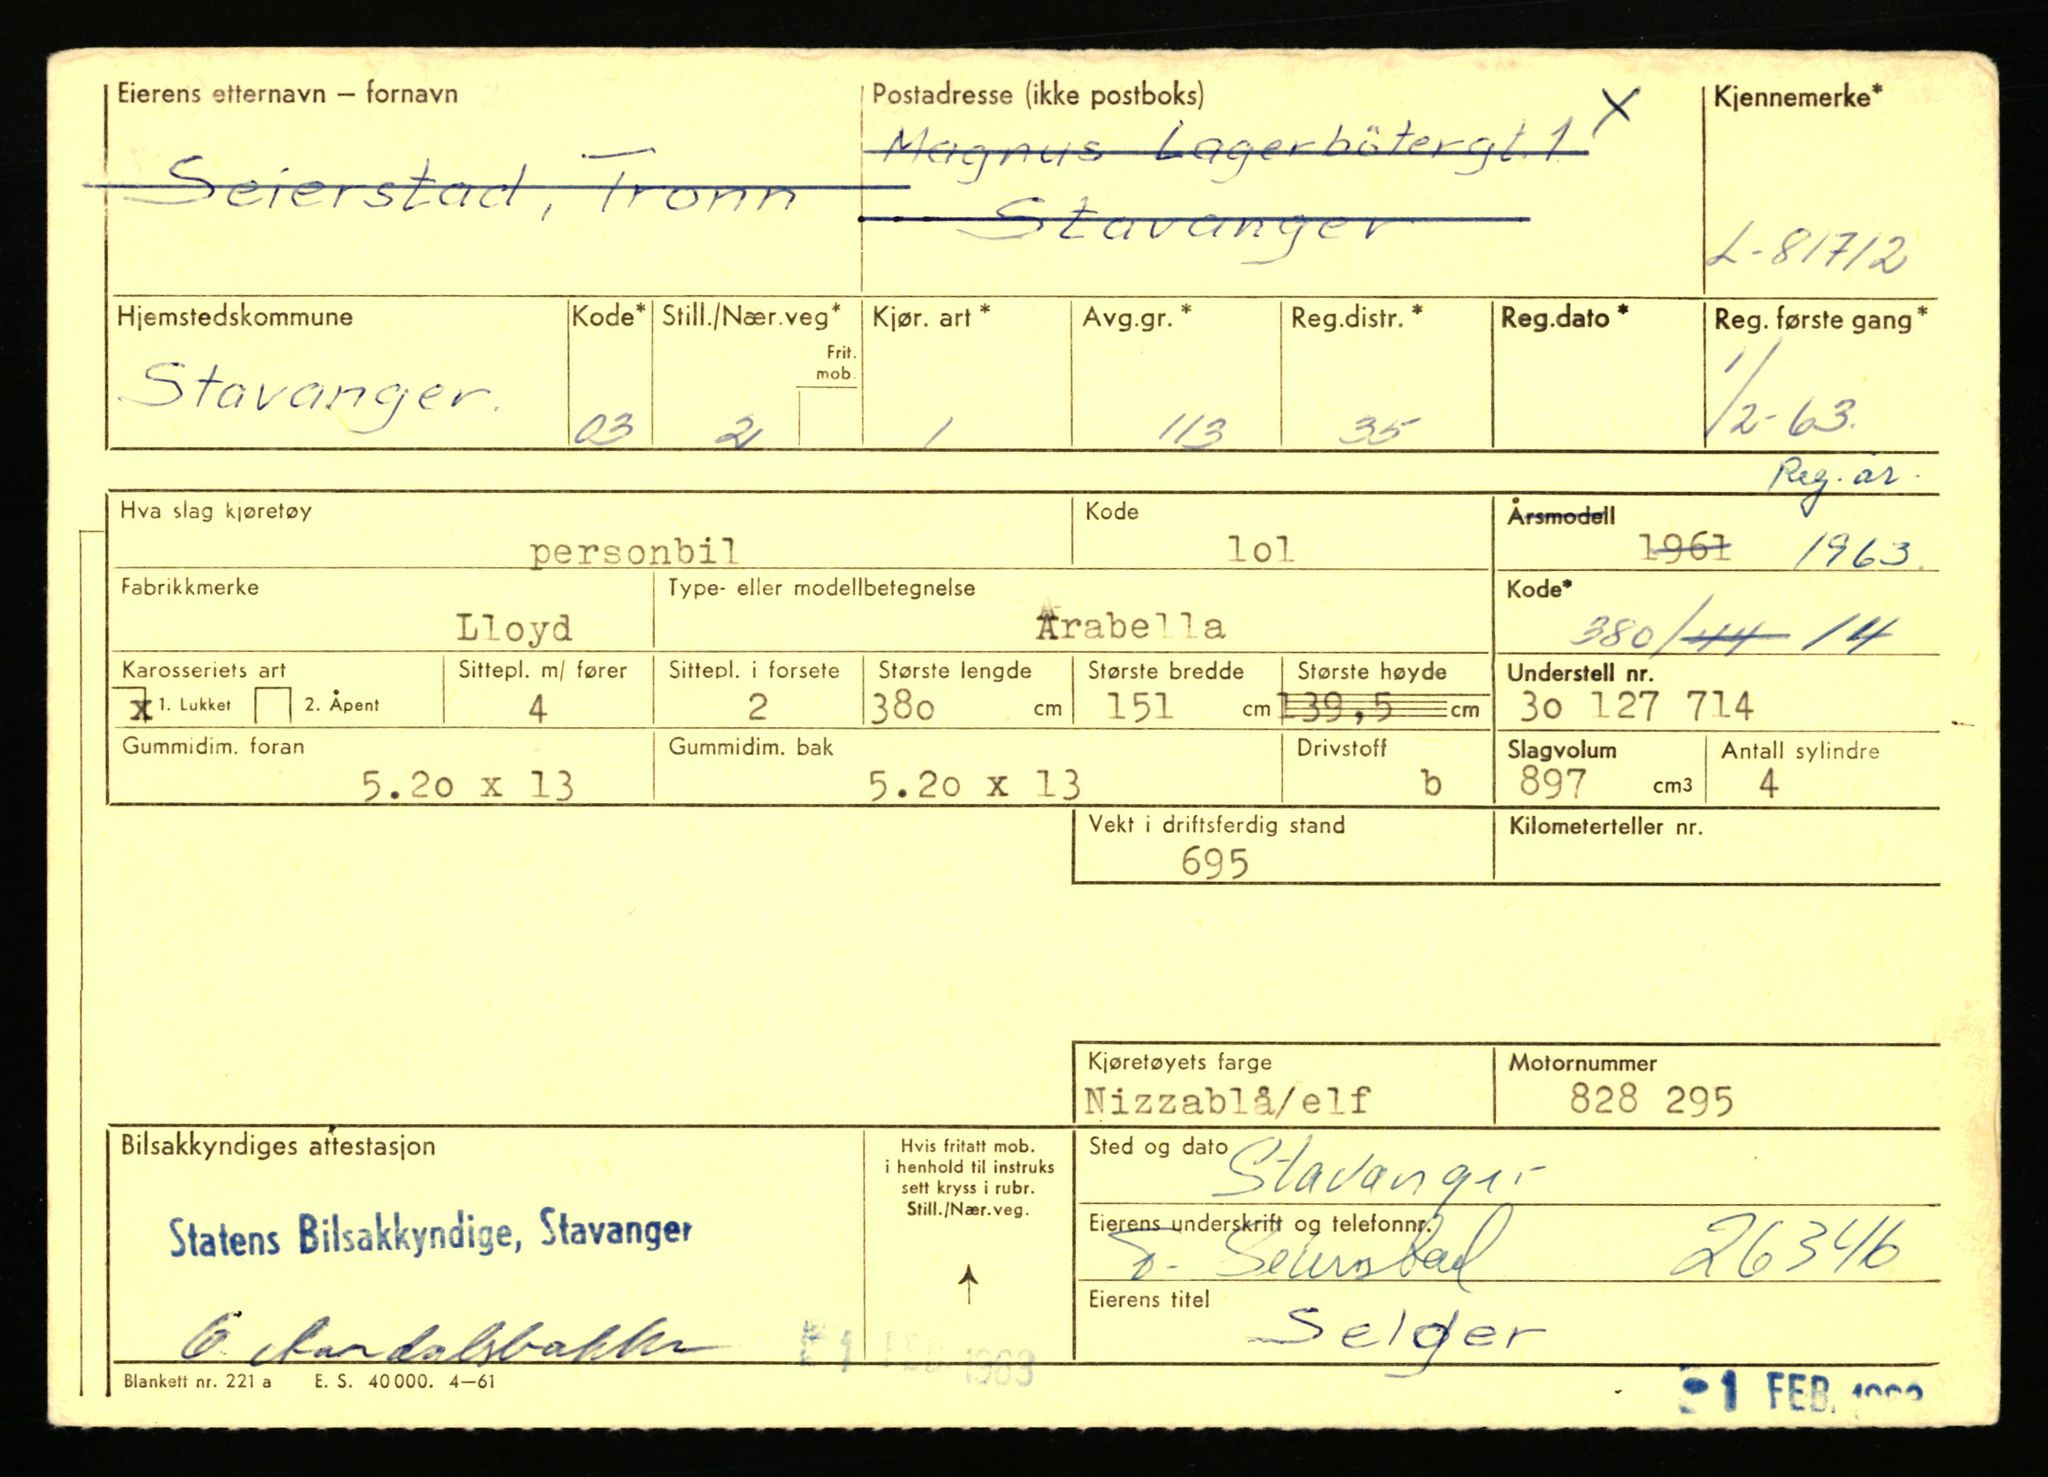 Eierens etternavn – fornavn
Postadresse (ikke postboks)
Kjennemerke*
Seierstad, Tronn
Magnus Lagerbötergt. 1 X
Stavanger
L-81712
Hjemstedskommune
Kode*
Still./Nær.veg*
Frit.
mob.
Kjør. art *
Avg.gr. *
Reg.distr. *
Reg.dato *
Reg. første gang *
Stavanger.
03
2
1
113
35
1/2-63.
Reg. år.
Hva slag kjøretøy
personbil
Kode
lol
Årsmodell
1961 1963.
Fabrikkmerke
Lloyd
Type- eller modellbetegnelse
Arabella
Kode*
380/44 14
Karosseriets art
x 1. Lukket 2. Åpent
Sittepl. m/ fører
4
Sittepl. i forsete
2
Største lengde
380 cm
Største bredde
151 cm
Største høyde
139,5 cm
Understell nr.
30 127 714
Gummidim. foran
5.20 x 13
Gummidim. bak
5.20 x 13
Drivstoff
b
Slagvolum
897 cm3
Antall sylindre
4
Vekt i driftsferdig stand
695
Kilometerteller nr.
Kjøretøyets farge
Nizzablå/elf
Motornummer
828 295
Bilsakkyndiges attestasjon
Statens Bilsakkyndige, Stavanger
Hvis fritatt mob.
i henhold til instruks
sett kryss i rubr.
Still./Nær.veg.
Sted og dato
Stavanger
Eierens underskrift og telefonnr.
T. Seierstad 26346
Eierens titel
Selger
1 FEB. 1963
Blankett nr. 221 a E. S. 40 000. 4–61
1 FEB.